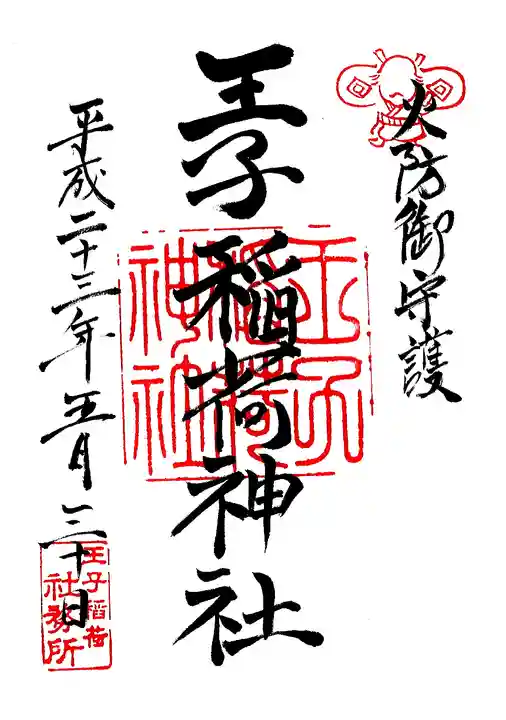 火防御守護
王子稲荷神社
王子
稲荷
神社
平成二十三年五月三十日
王子稲荷
社務所